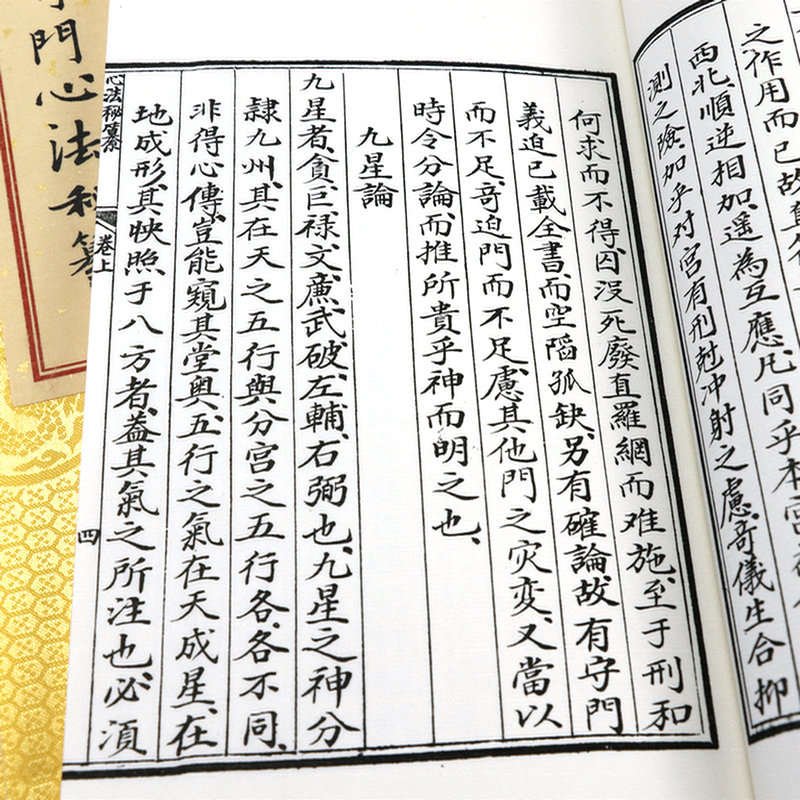 之作用而已故直
西北順逆相加遥為互應凡同乎本宫
測之險加乎对宫有刑尅冲射之慮竒儀生合抑
何求而不得囚没死廢直羅網而难施至于刑和
義迫已載全書而空陷孤缺另有確論故有守門
而不足竒迫門而不足慮其他門之灾变又當以
時令分論而推所貴乎神而明之也
九星論
九星者貪巨禄文廉武破左輔右弼也九星之神分
隷九州其在天之五行與分宫之五行各各不同
非得心傳豈能窺其堂奥五行之氣在天成星在
地成形其映照于八方者盖其氣之所注也必須
心法秘纂
卷上
四
門心法秘纂